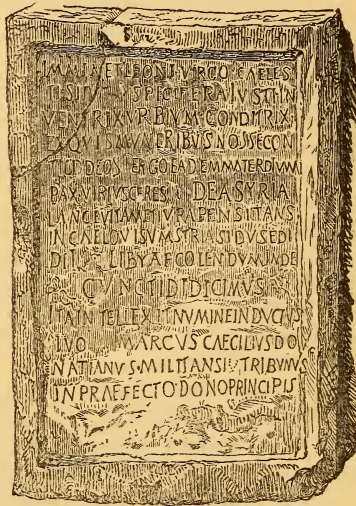 IMMINET LEONI VIRGO CAELES
TI SITV SPICIFERA IVSTI IN
VENTRIX VRBIVM CONDITRIX
EX QVIS MVNERIBVS NOSSE CON
TIGIT DEOS ERGO EADEM MATER DIVVM
PAX VIRTVS CERES DEA SYRIA
LANCE VITAM ET IVRA PENSITANS
IN CAELO VISVM SYRIA SIDVS EDI
DIT LIBYAE COLENDVM INDE
CVNCTI DIDICIMVS
ITA INTELLEXIT NVMINE INDVCTVS
TVO MARCVS CAECILIVS DO
NATIANVS MILITANS TRIBVNVS
IN PRAEFECTO DONO PRINCIPIS